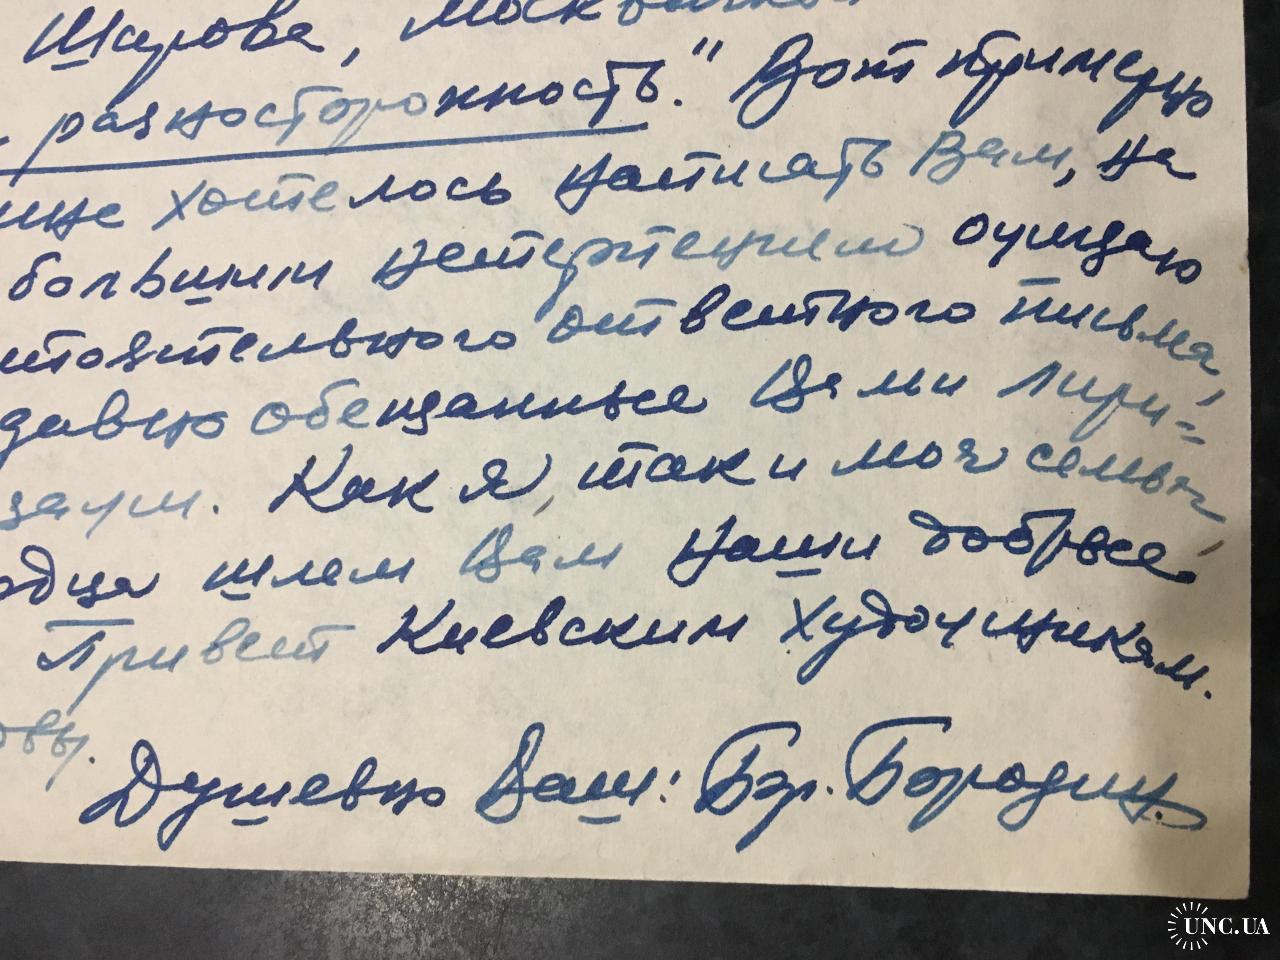 Шарова, Москвичка
разносторонность." Вот примерно
мне хотелось написать Вам, на
большим нетерпением ожидаю
стоятельного ответного письма,
давно обещанные Вами Лири-
заум. Как я, так и моя семья,
рдца шлем Вам наши добрые
Привет Киевским Художникам.
овы.
Душевно Ваш: Бр. Бородин.
UNC.UA